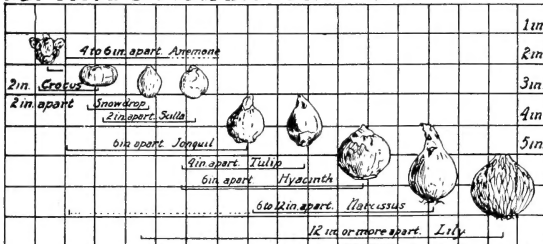 1 in
4 to 6 in. apart. Anemone
2 in
2 in. Crocus
3 in
2 in apart
Snowdrop
2 in. apart. Scilla
4 in
6 in apart Jonquil
5 in
4 in. apart. Tulip
6 in. apart Hyacinth
6 to 12 in. apart. Narcissus
12 in or more apart. Lily